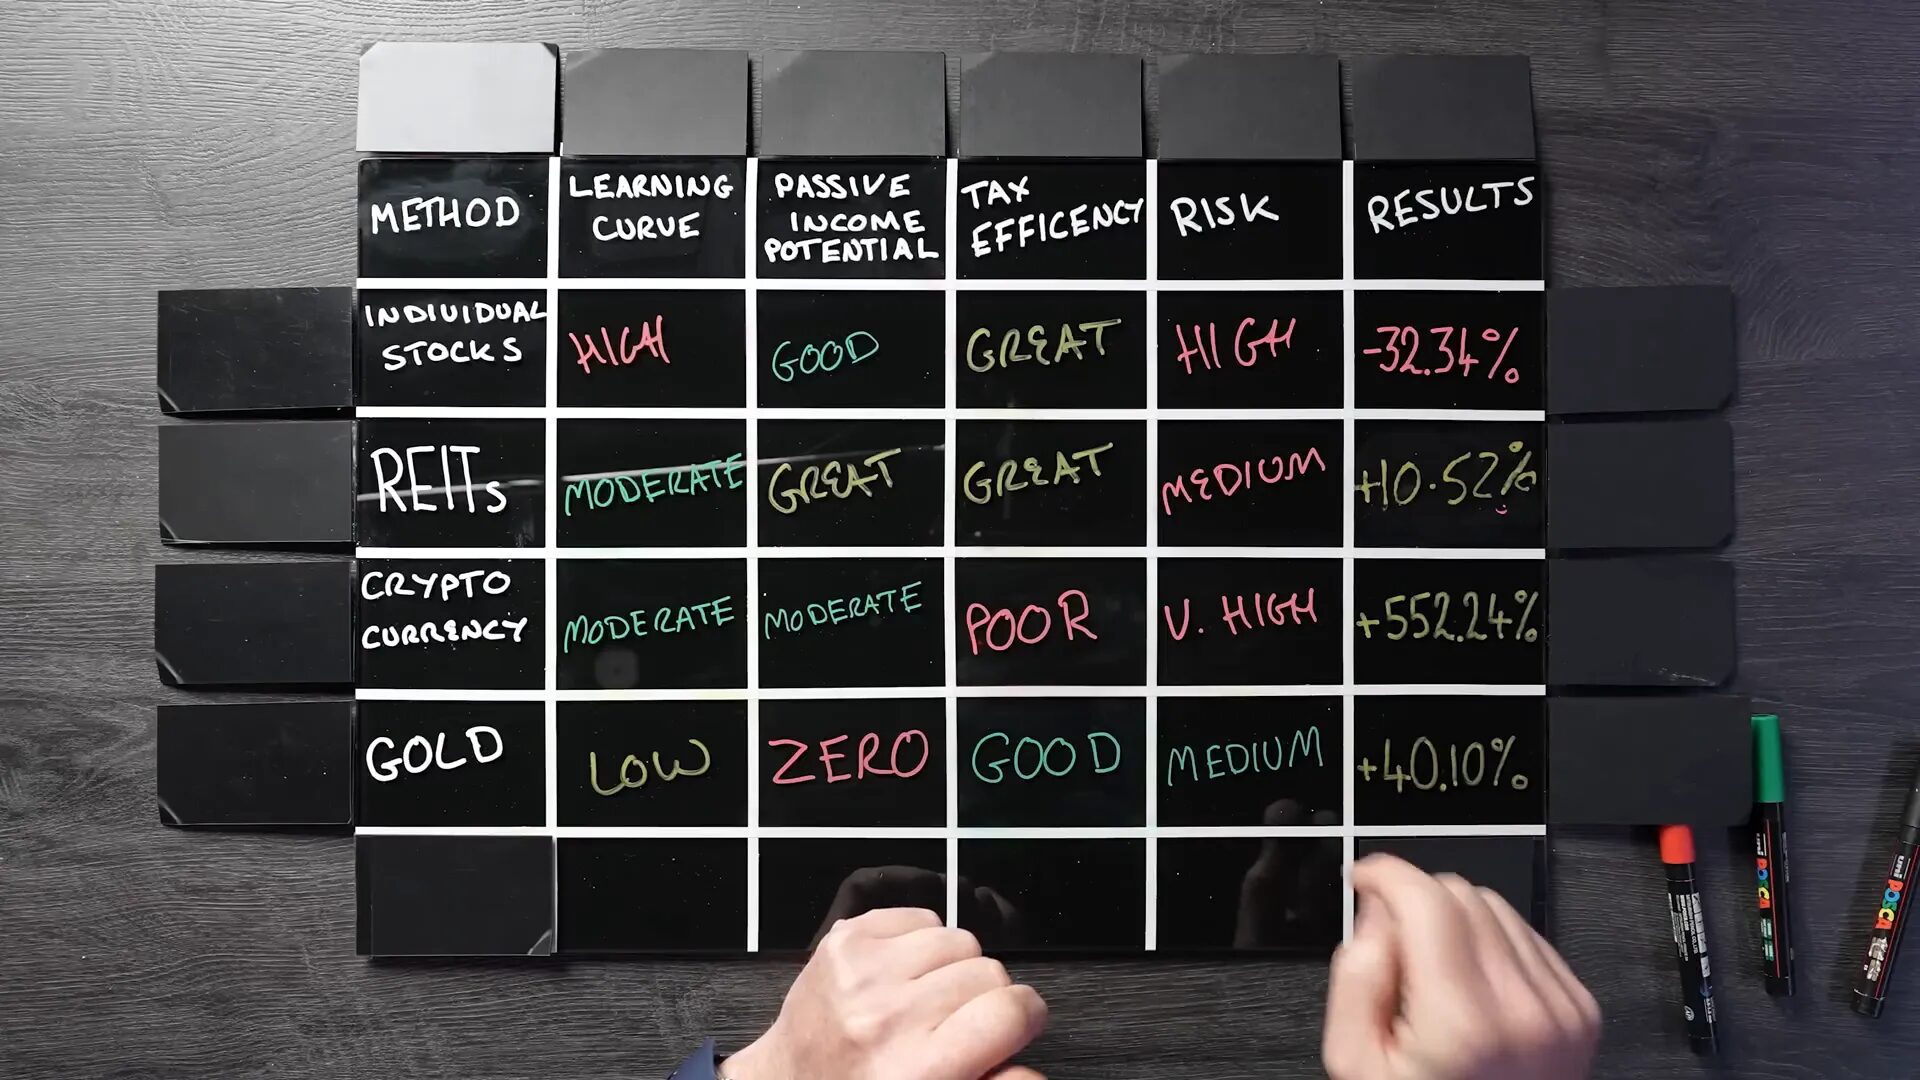 METHOD
LEARNING
CURVE
PASSIVE
INCOME
POTENTIAL
TAX
EFFICENCY
RISK
RESULTS
INDIVIDUAL
STOCKS
HIGH
GOOD
GREAT
HIGH
-32.34%
REITs
MODERATE
GREAT
GREAT
MEDIUM
+10.52%
CRYPTO
CURRENCY
MODERATE
MODERATE
POOR
V. HIGH
+552.24%
GOLD
LOW
ZERO
GOOD
MEDIUM
+40.10%
uni POSCA
uni POSCA